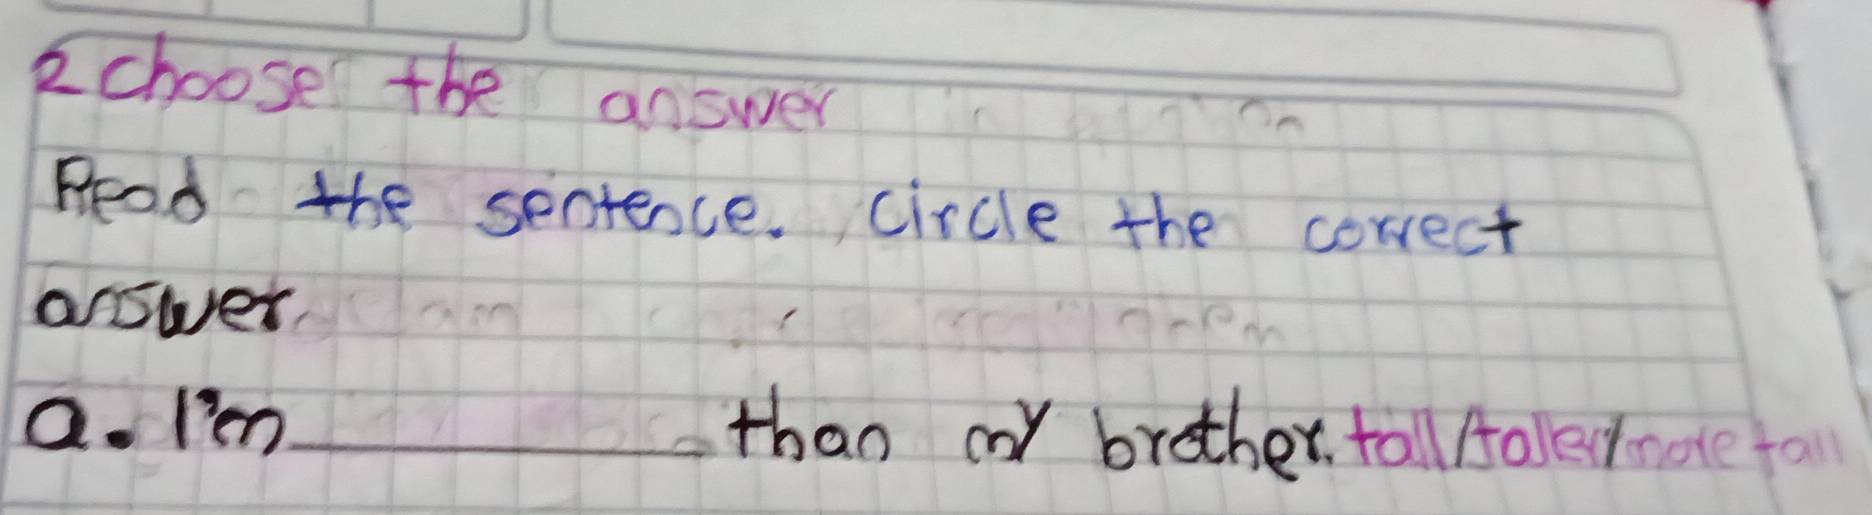 2 choose the answer
Read the sentence. circle the correct
answer.
a. I'm ________ than my brother. tall/taller/more tall